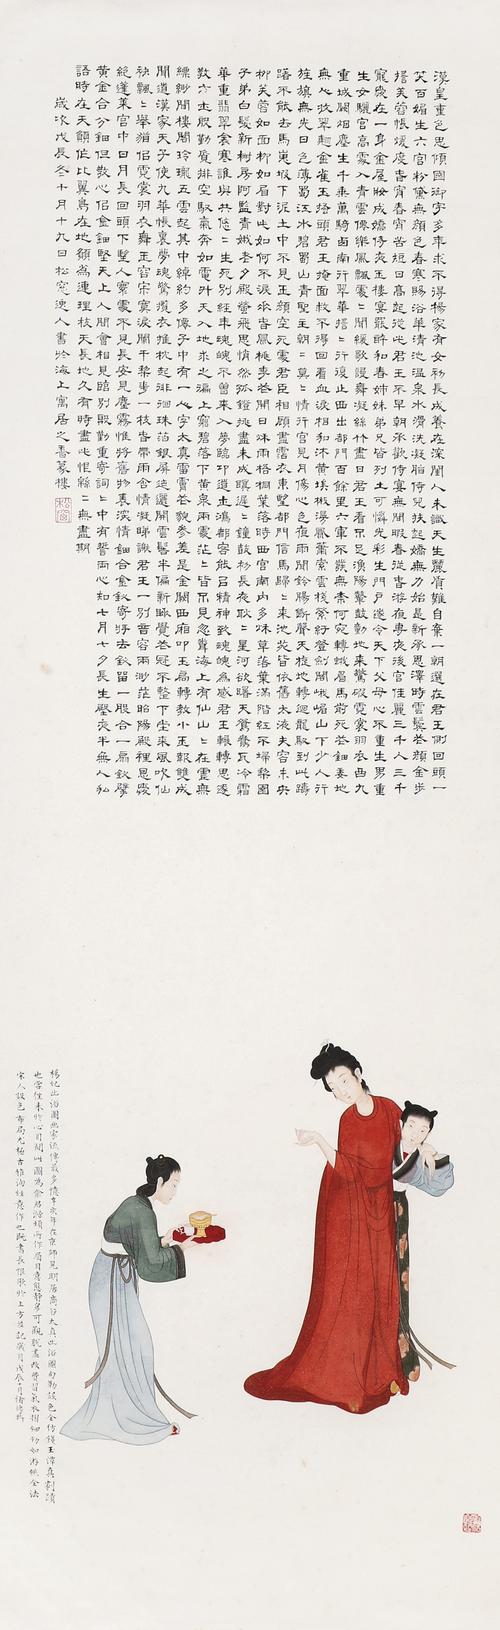 漢皇重色思傾國御宇多年求不得楊家有女初長成養在深閨人未識天生麗質難自棄一朝選在君王側回頭一
笑百媚生六宮粉黛無顏色春寒賜浴華清池溫泉水滑洗凝脂侍兒扶起嬌無力始是新承恩澤時雲鬢花顏金步
搖芙蓉帳煖度春宵春宵苦短日高起從此君王不早朝承歡侍宴無閒暇春從春遊夜專夜後宮佳麗三千人三千
寵愛在一身金屋妝成嬌侍夜玉樓宴罷醉和春姊妹弟兄皆列土可憐光彩生門戶遂令天下父母心不重生男重
生女驪宮高處入青雲僊樂風飄處〻聞緩歌謾舞凝絲竹盡日君王看不足漁陽鼙鼓動地來驚破霓裳羽衣曲九
重城闕烟塵生千乘萬騎西南行翠華搖〻行復止西出都門百餘里六軍不發無奈何宛轉蛾眉馬前死花鈿委地
無人收翠翹金雀玉搔頭君王掩面救不得回看血淚相和沭黃埃散漫風蕭索雲棧縈紆登劍閣峨嵋山下少人行
旌旗無光日色薄蜀江水碧蜀山青聖主朝〻暮〻情行宮見月傷心色夜雨聞鈴腸斷聲天旋地轉迴龍馭到此躊
躇不能去馬嵬坡下泥土中不見玉顏空死處君臣相顧盡霑衣東望都門信馬歸〻來池苑皆依舊太液芙容未央
柳芙蓉如面柳如眉對此如何不淚垂春風桃李花開日秋雨梧桐葉落時西宮南內多秋草落葉滿階紅不掃梨園
子弟白髮新椒房阿監青娥老夕殿螢飛思悄然孤鐙挑盡未成眠遲〻鐘鼓初長夜耿〻星河欲曙天鴛鴦瓦冷霜
華重翡翠衾寒誰與共悠〻生死別經年魂魄不曾來入夢臨邛道士鴻都客能以精神致魂魄為感君王輾轉思遂
教方士殷勤覓排空馭氣奔如電升天入地求之遍上窮碧落下黃泉兩處茫〻皆不見忽聞海上有仙山〻在虛無
縹緲間樓閣玲瓏五雲起其中綽約多僊子中有一人字太真雪膚花貌參差是金闕西廂叩玉扃轉教小玉報雙成
聞道漢家天子使九華帳裏夢魂驚攬衣推枕起徘徊珠箔銀屏迤邐開雲鬢半偏新睡覺花冠不整下堂來風吹仙
袂飄〻舉猶似霓裳羽衣舞玉容寂寞淚闌干梨花一枝春帶雨含情凝睇謝君王一別音容兩渺茫昭陽殿裡恩愛
絕蓬萊宮中日月長回頭下望人寰處不見長安見塵霧惟將舊物表深情鈿合金釵寄將去釵留一股合一扇釵擘
黃金合分鈿但教心侶金鈿堅天上人間會相見臨別殷勤重寄詞〻中有誓兩心知七月七夕長生殿夜半無人私
語時在天願作比翼鳥在地願為連理枝天長地久有時盡此恨緜〻無盡期
歲次戊辰冬十月十九日松窗逸人書於海上寓居之香篆樓
松窗
楊妃出浴圖畫家流傳最多憶辛亥年在京師見周居商太真出浴圖勾勒設色全仿錢玉潭真
也當往來於心目間此圖為余居所作眉目意態靜穆可觀脫盡惡習氣衣摺細勁如游絲全法
宋人設色布局尤極古雅洵佳意作也既書長恨歌於上方並記歲月戊辰十月褚德彝